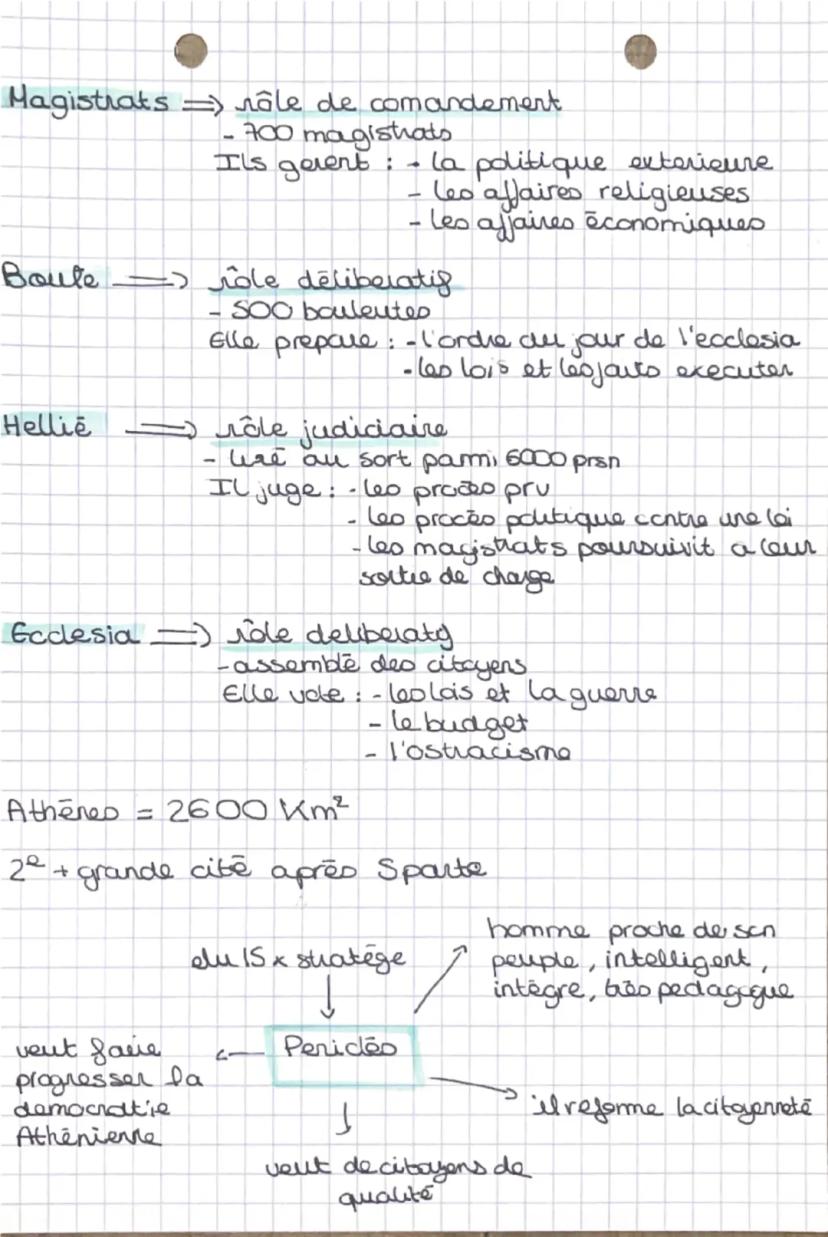 Magistrats => rôle de comandement
- 700 magistrats
Ils gerent : - la politique exterieure
- les affaires religieuses
- les affaires économiques
Boule => rôle déliberatif
- 500 bouleutes
Elle prepare : - l'ordre du jour de l'ecclesia
- les lois et les fait executer
Hellié => rôle judiciaire
- tiré au sort parmi 6000 prsn
Il juge : - les procès prv
- les procès politique contre une loi
- les magistrats poursuivit a leur
sortie de charge
Ecclesia => rôle deliberatif
- assemblé des citoyens
Elle vote : - les lois et la guerre
- le budget
- l'ostracisme
Athènes = 2600 Km²
2e + grande cité après Sparte
homme proche de son
peuple, intelligent,
intègre, très pedagogue
elu 15 x stratège
Periclès
veut faire
progresser la
democratie
Athénienne
il reforme la citoyenneté
veut de citoyens de
qualité